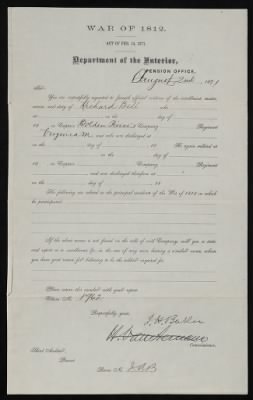 WAR OF 1812.
ACT OF FEB. 14, 1871.
Department of the Interior,
PENSION OFFICE,
August 2nd, 1871
SIR:
You are respectfully requested to furnish official evidence of the enlistment, muster,
service, and duty of Richard Bell who
on the day of
18 in Captain Holden Company, Regiment
Virginia M and was discharged at
on the day of 18 He again enlisted at
on the day of
18 in Captain Company, Regiment
and was discharged therefrom at
on the day of 18
The following are stated as the principal incidents of the War of 1812 in which
he participated:
If the above name is not found in the rolls of said Company, will you so state
and report as to enrollment, &c. in the case of any man bearing a similar name, whom
you have good reason for believing to be the soldier inquired for.
Please return this circular with your report.
Claim No. 1962
Respectfully yours,
J. H. Baker
Commissioner.
Third Auditor,
Present.
Room No. J.A.B